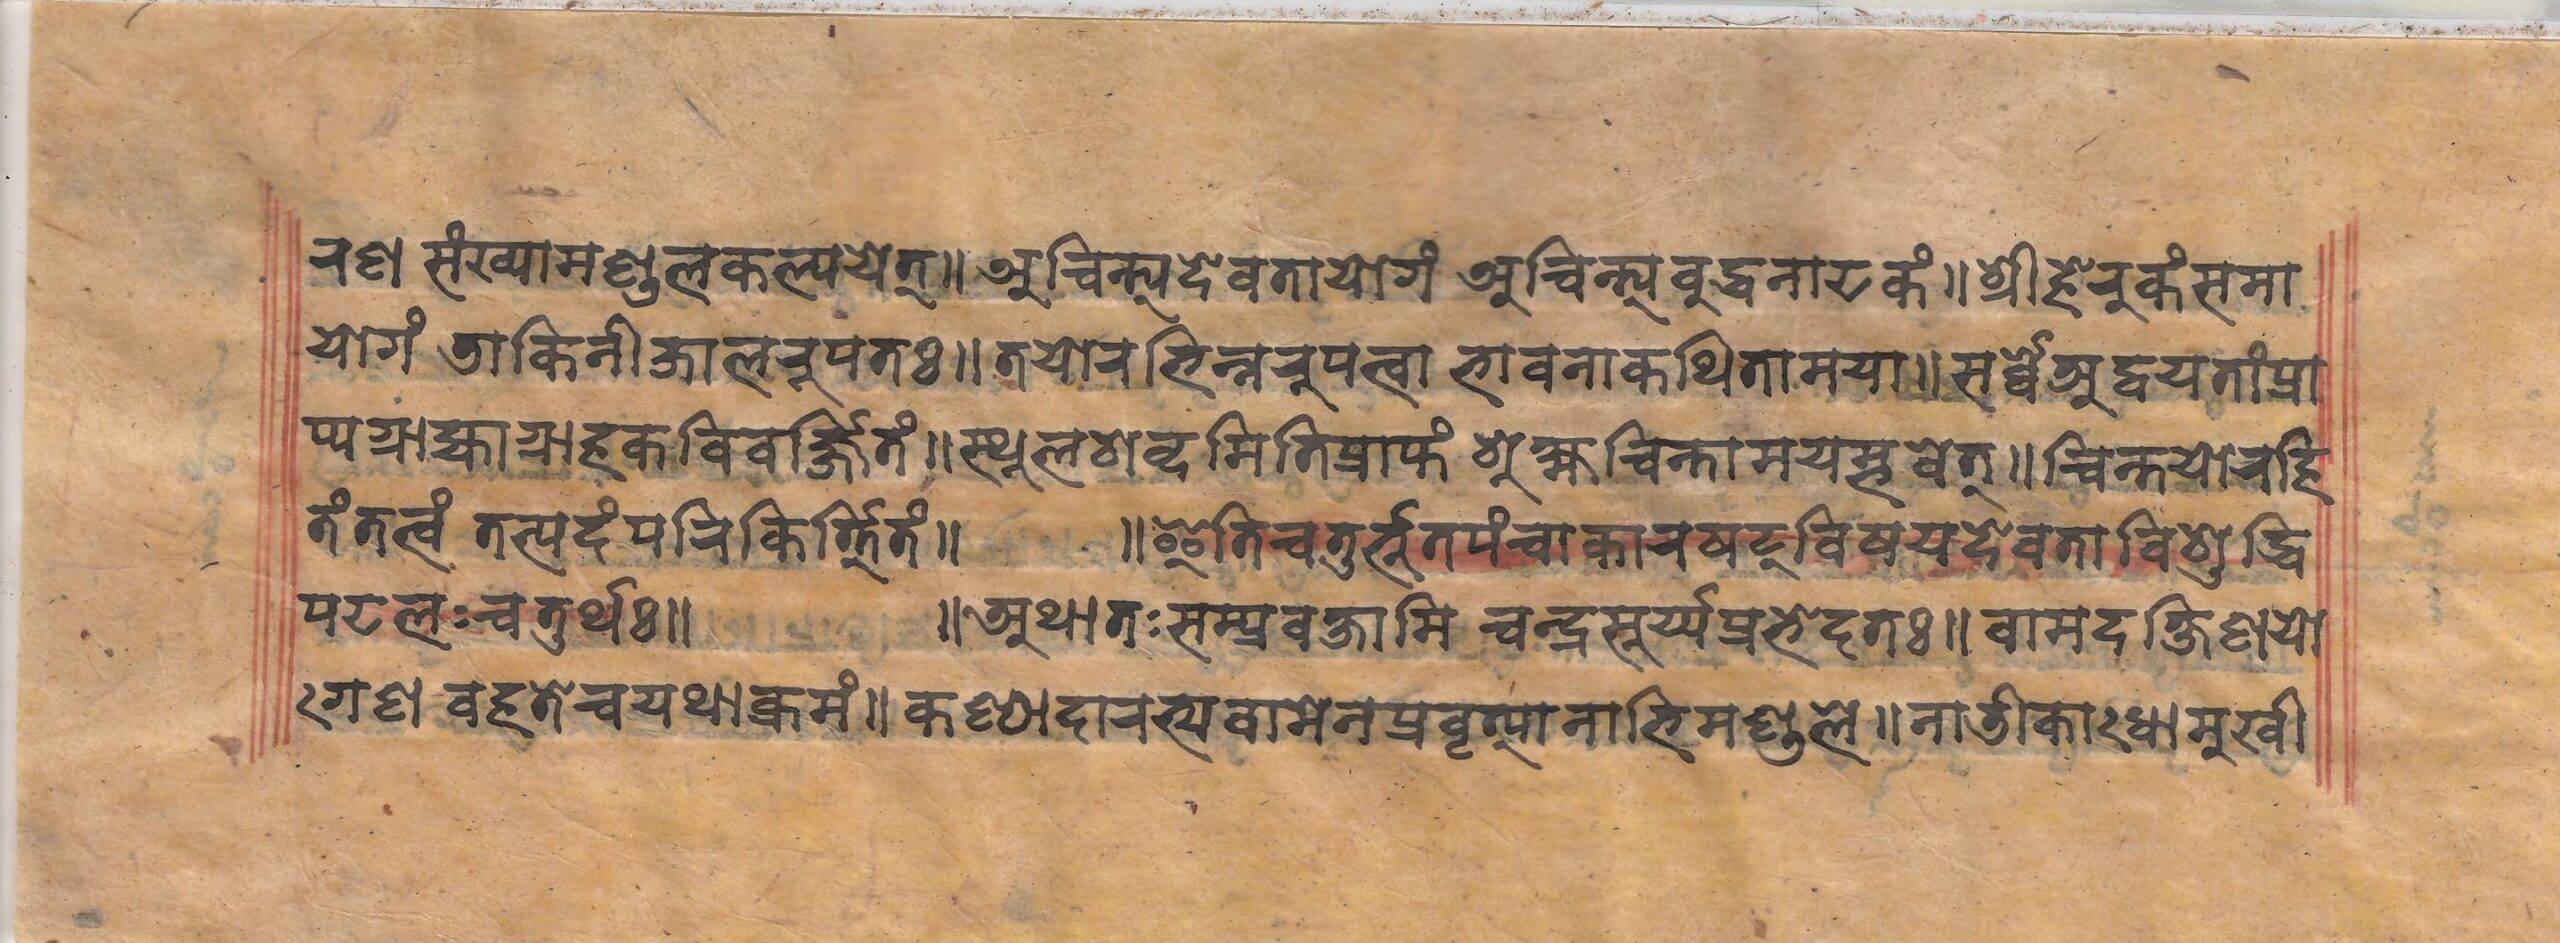 रण संख्यामण्डुलकल्पयेत्॥ अचिन्त्यदेवतायोगं अचिन्त्यबुद्धनाटकं॥ श्रीहेरुकंसमा
योगं डाकिनीजालरूपतः॥ तयोरभिन्नरूपत्वा भावनाकथितामया॥ सर्व्वेअद्वयतांप्रा
प्यग्राह्याग्राहकविवर्ज्जितं॥ स्थूलशब्दमितिप्राप्तं शुक्ष्मचिन्तामयम्भवेत्॥ चिन्तयोरहि
तंतत्वं तत्पदंपरिकिर्त्तितं॥ ॥इतिचतुर्भूतपंचाकारषट्विषयदेवताविशुद्धि
पटलःचतुर्थः॥ ॥अथातःसम्प्रवक्ष्यामि चन्द्रसूर्य्यप्रभेदतः॥ वामदक्षिणयो
र्गण वहतेचयथाक्रमं॥ कण्ठादारभ्यवामेनप्रवृत्त्यानाभिमण्डुले॥ नाडीकार्धामुखी